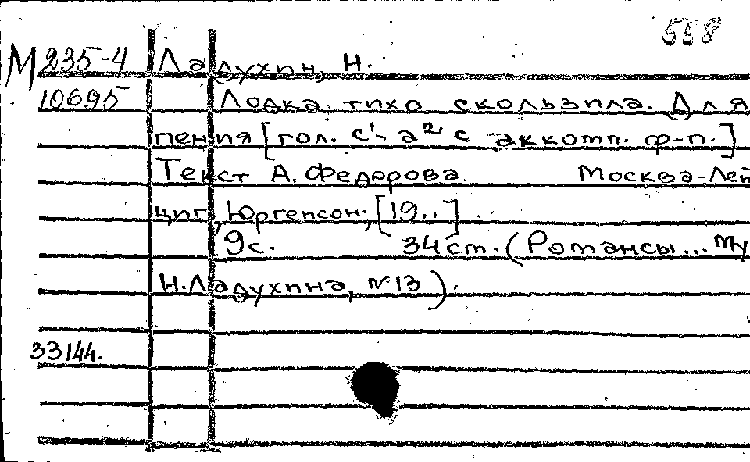 558
М 235-4 Ладухин, Н.
10695 Лодка тихо скользила. Для
пения [гол. c¹- a² с аккомп. ф-п.]
Текст А. Федорова. Москва-Лей
циг, Юргенсон, [19..]
9с. 34 ст. (Романсы... Му
Н. Ладухина, №13).
33144.